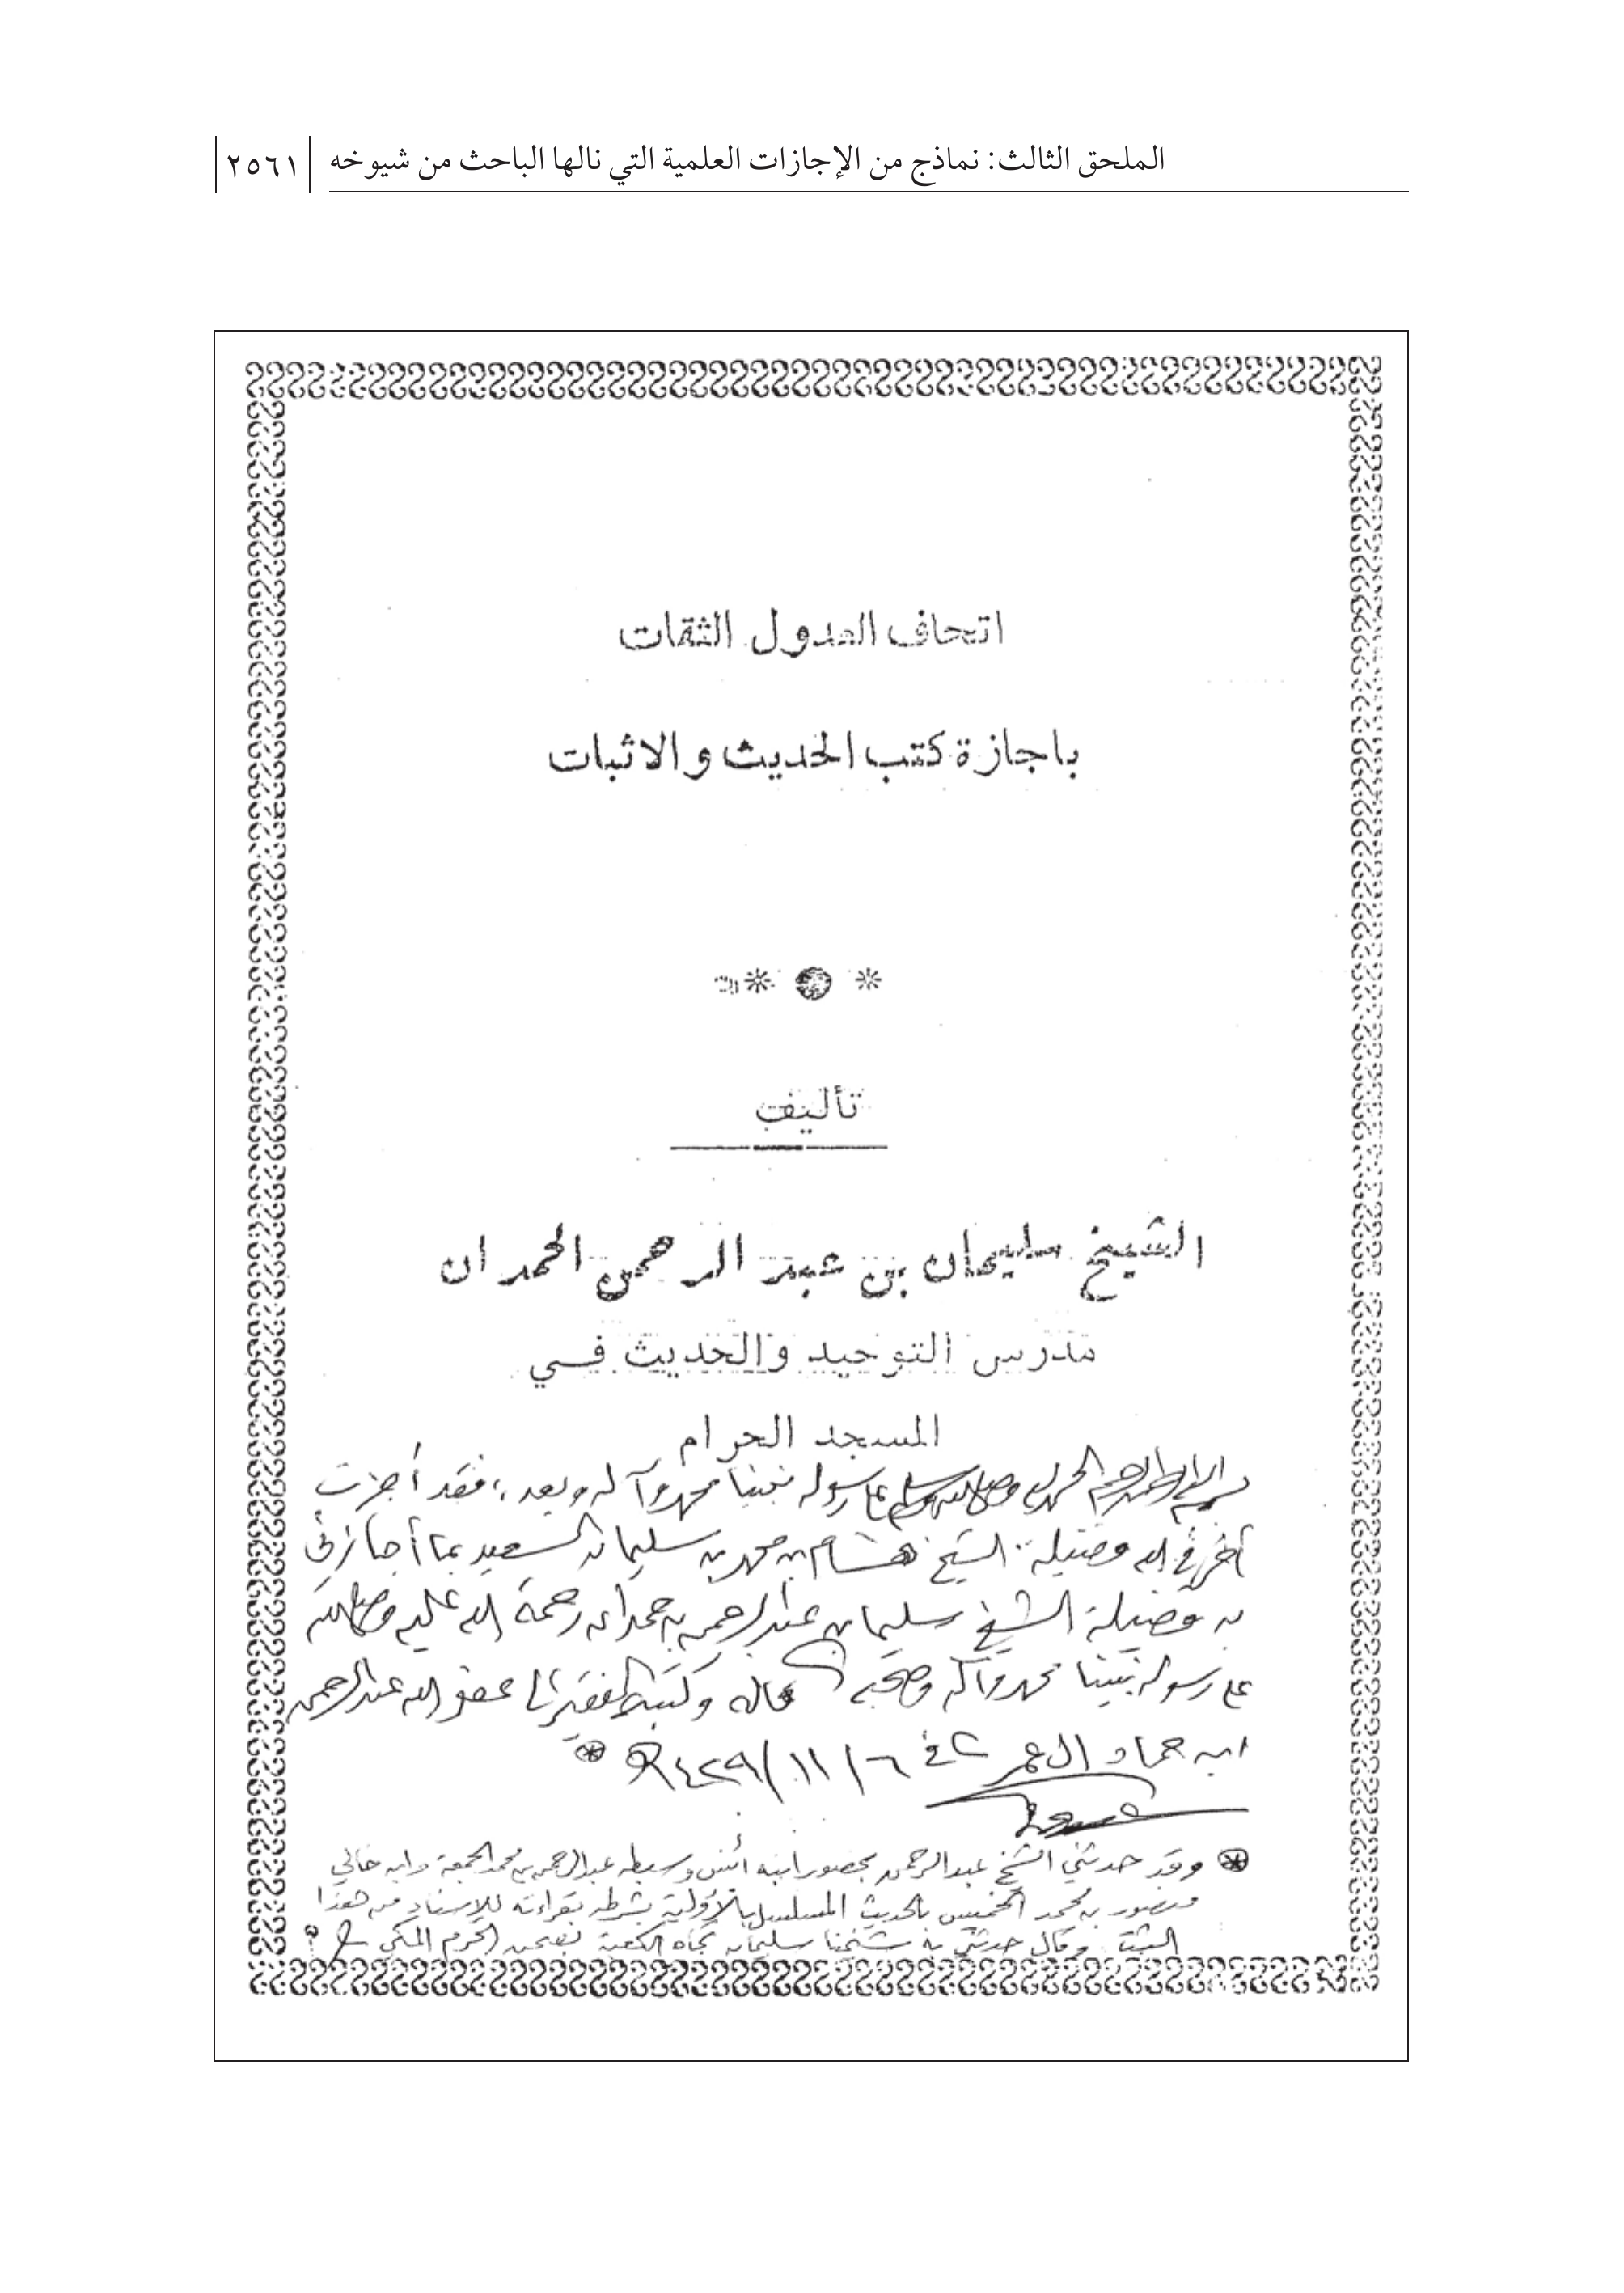 الملحق الثالث: نماذج من الإجازات العلمية التي نالها الباحث من شيوخه
٢٥٦١
اتحاف العدول الثقات
باجازة كتب الحديث والاثبات
تأليف
الشيخ سليمان بن عبد الرحمن الحمدان
مدرس التوحيد والحديث في
المسجد الحرام
بسم الله الرحمن الرحيم الحمد لله وصلى الله وسلم على رسوله نبينا محمد وآله وبعد، فقد أجزت
أخي في الله فضيلة الشيخ هشام بن محمد بن سليمان السعيد بما أجازني
به فضيلة الشيخ سليمان بن عبدالرحمن بن حمدان رحمة الله عليه وصلى الله
على رسوله نبينا محمد وآله وصحبه قاله وكتبه الفقير إلى عفو الله عبدالرحمن
ابن حماد العمر في ٦/١١/١٤٢٩هـ
وقد حدثني الشيخ عبدالرحمن بحضور ابنه أنس وسبطه عبدالرحمن بن محمد الجمعة وابن خالي
منصور بن محمد الخميس بالحديث المسلسل بالأولية بشرطه بقراءته للإسناد من هذا
الثبت وقال حدثني به شيخنا سليمان تجاه الكعبة بصحن الحرم المكي